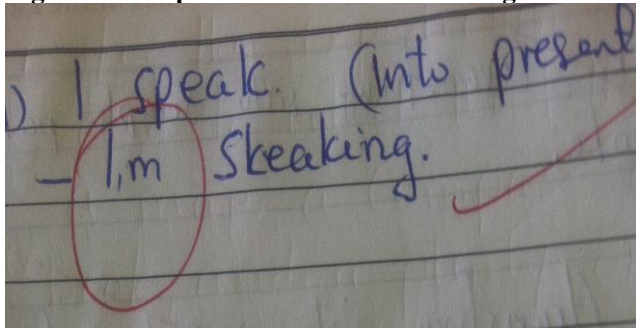 ) I speak. (into present
- I,m Skeaking.